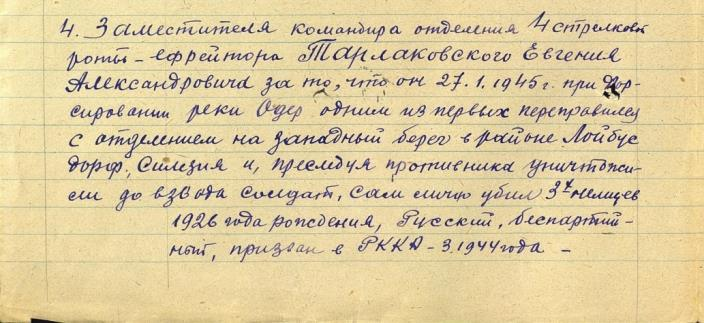 4. Заместителя командира отделения 4 стрелковой
роты – ефрейтора Тарлаковского Евгения
Александровича за то, что он 27.1.1945г. при фор-
сировании реки Одер одним из первых переправился
с отделением на западный берег в районе Лойбус
дорф, Силезия и, преследуя противника уничтожи-
ли до взвода солдат, сам лично убил 3х немцев
1926 года рождения, Русский, беспартий-
ный, призван в РККА – 3.1944 года –